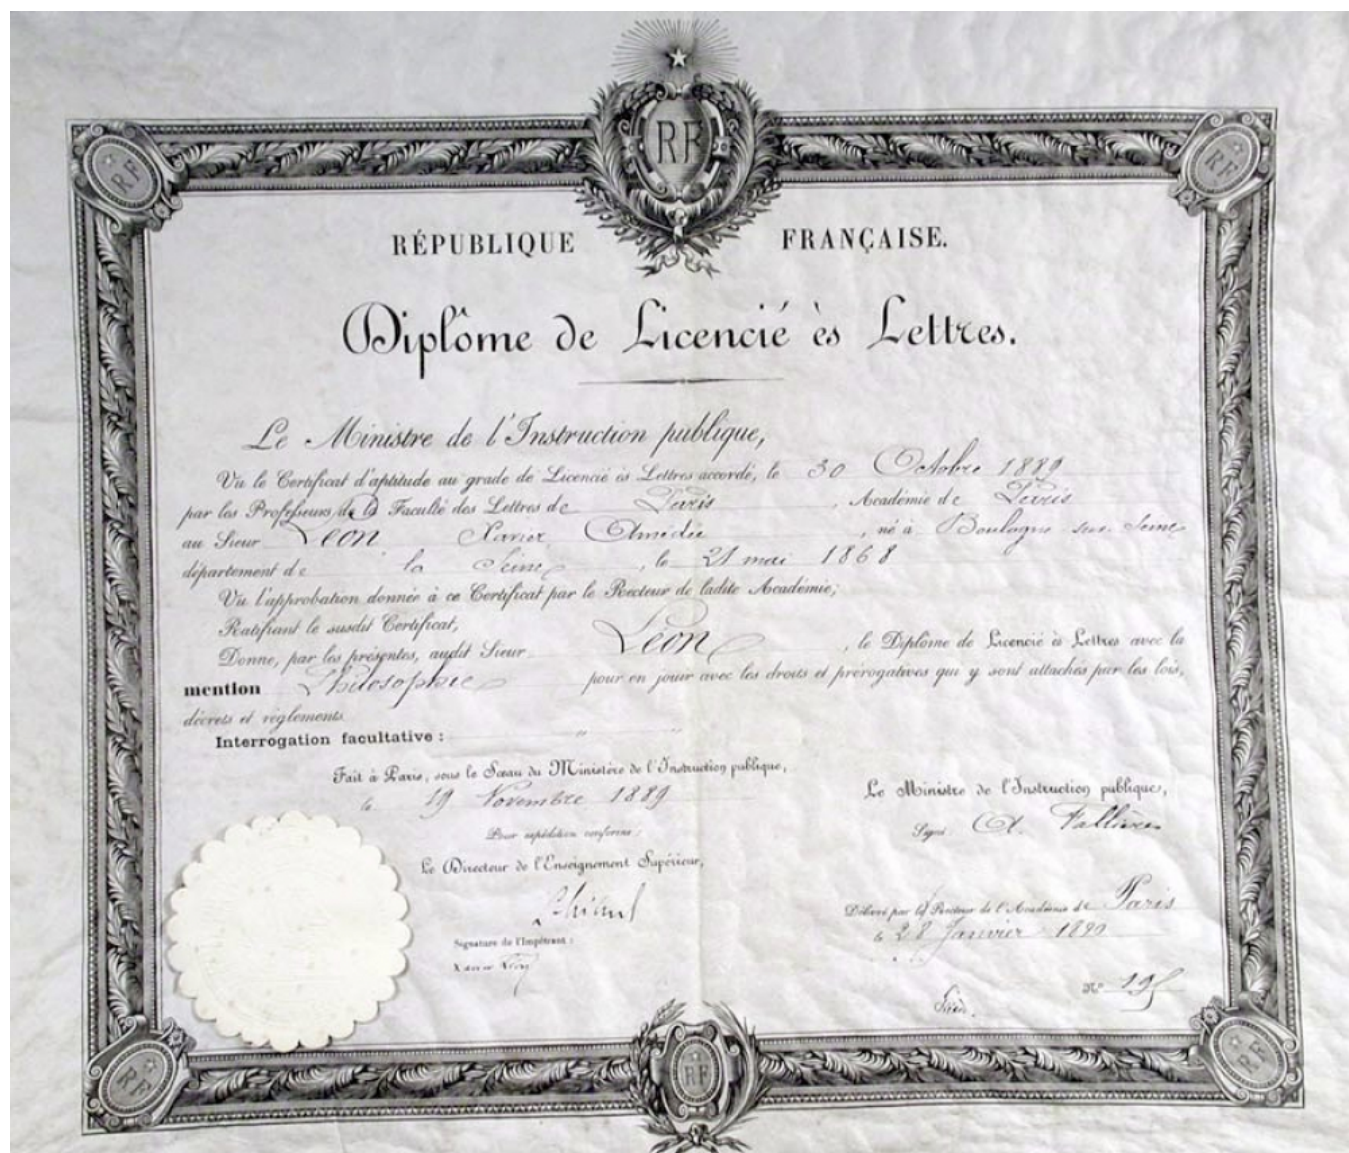 RF
RF
RF
RÉPUBLIQUE FRANÇAISE.
Diplôme de Licencié ès Lettres.
Le Ministre de l'Instruction publique,
Vu le Certificat d'aptitude au grade de Licencié ès Lettres accordé, le 30 Octobre 1889
par les Professeurs de la Faculté des Lettres de Paris, Académie de Paris
au Sieur Léon Xavier Amédée, né à Boulogne sur Seine
département de la Seine, le 21 mai 1868
Vu l'approbation donnée à ce Certificat par le Recteur de ladite Académie;
Ratifiant le susdit Certificat,
Donne, par les présentes, audit Sieur Léon, le Diplôme de Licencié ès Lettres avec la
mention Philosophie pour en jouir avec les droits et prérogatives qui y sont attachés par les lois,
décrets et règlements.
Interrogation facultative : " "
Fait à Paris, sous le Sceau du Ministère de l'Instruction publique,
le 19 Novembre 1889
Le Ministre de l'Instruction publique,
Signé A. Fallières
Pour expédition conforme :
Le Directeur de l'Enseignement Supérieur,
Signature de l'Impétrant :
Xavier Léon
Délivré par le Recteur de l'Académie de Paris
le 28 Janvier 1890
N° 195
RF
RF
RF